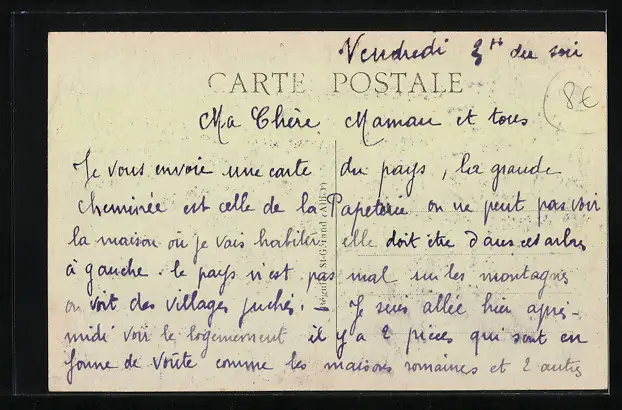 Vendredi 3 H du soir
CARTE POSTALE
8€
Ma Chère Maman et tous
Je vous envoie une carte du pays, la grande
cheminée est celle de la Papeterie on ne peut pas voir
la maison où je vais habiter elle doit être dans ces arbres
à gauche. le pays n'est pas mal sur les montagnes
on voit des villages juchés. — Je suis allée hier après-
midi voir le logemement il y a 2 pièces qui sont en
forme de voûte comme les maisons romaines et 2 autres